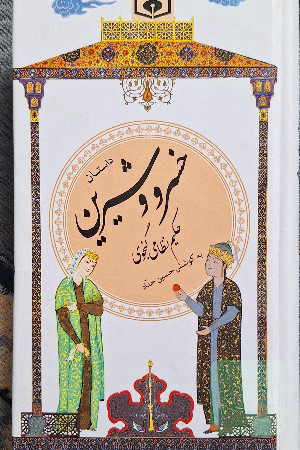 داستان
خسرو و شیرین
حکیم نظامی گنجوی
به کوشش حسین